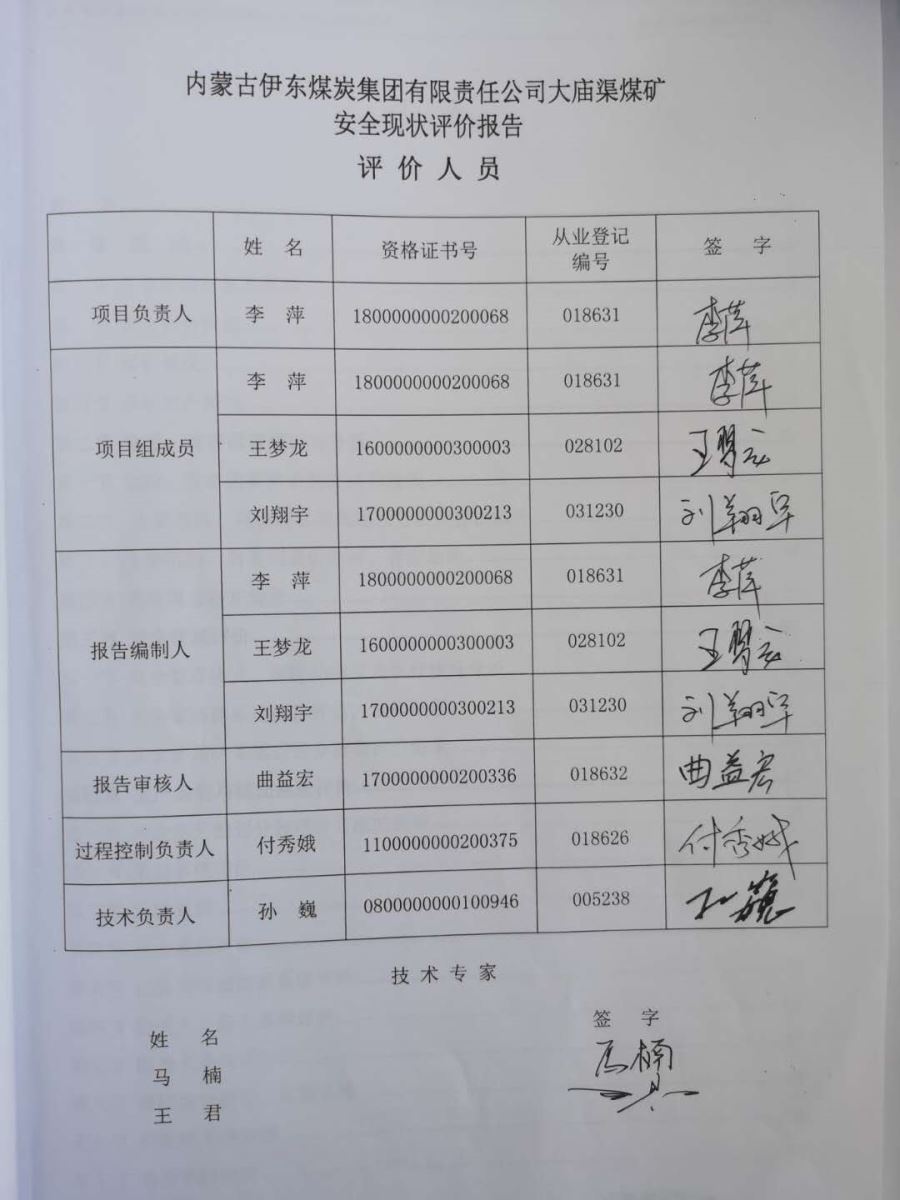 内蒙古伊东煤炭集团有限责任公司大庙渠煤矿
安全现状评价报告
评价人员
姓名 资格证书号 从业登记编号 签字
项目负责人 李萍 1800000000200068 018631 李萍
项目组成员 李萍 1800000000200068 018631 李萍
王梦龙 1600000000300003 028102 王梦龙
刘翔宇 1700000000300213 031230 刘翔宇
报告编制人 李萍 1800000000200068 018631 李萍
王梦龙 1600000000300003 028102 王梦龙
刘翔宇 1700000000300213 031230 刘翔宇
报告审核人 曲益宏 1700000000200336 018632 曲益宏
过程控制负责人 付秀娥 1100000000200375 018626 付秀娥
技术负责人 孙巍 0800000000100946 005238 孙巍
技术专家
姓名 签字
马楠 马楠
王君